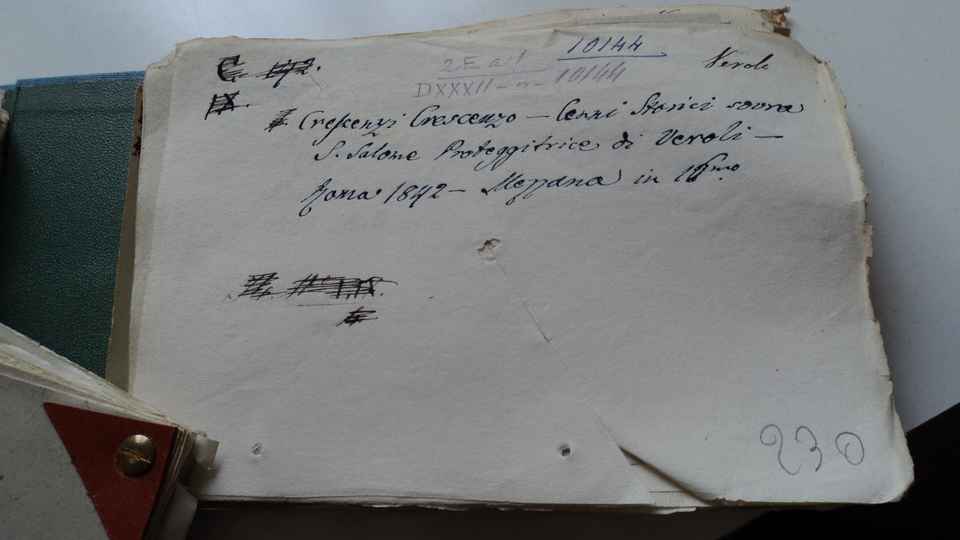 C 192. 2 E a 1 10144 Veroli
IX. DXXXII-n-10144
Crescenzi Crescenzo — Cenni Storici sovra
S. Salome Proteggitrice di Veroli —
Roma 1842 — Menzana in 16mo
230